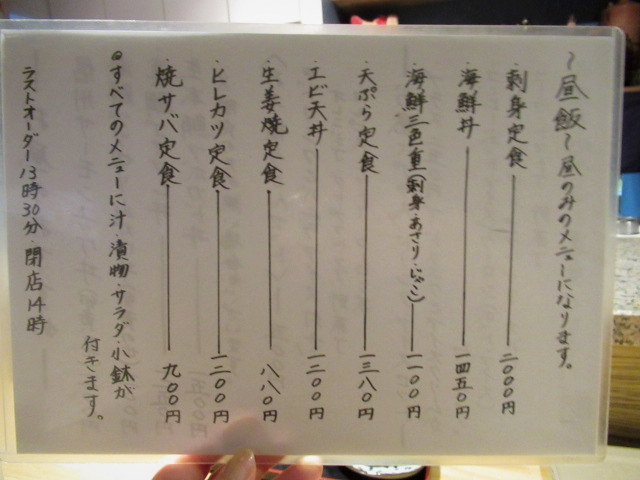 ～昼飯～昼のみのメニューになります。
・刺身定食 二〇〇〇円
・海鮮丼 一四五〇円
・海鮮三色重(刺身・あさり・じゃこ) 一一〇〇円
・天ぷら定食 一三八〇円
・エビ天丼 一二〇〇円
・生姜焼定食 八八〇円
・ヒレカツ定食 一二〇〇円
・焼サバ定食 九〇〇円
◎すべてのメニューに汁・漬物・サラダ・小鉢が
付きます。
ラストオーダー13時30分・閉店14時